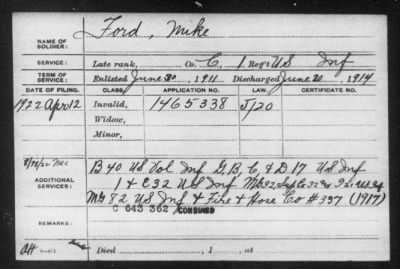 NAME OF SOLDIER: Ford, Mike
SERVICE: Late rank, Co. C, 1 Reg't US Inf
TERM OF SERVICE: Enlisted June 30, 1911 Discharged June 20, 1914
DATE OF FILING. CLASS. APPLICATION NO. LAW. CERTIFICATE NO.
1922 Apr 12 Invalid, 1465338 J/20
Widow,
Minor,
ADDITIONAL SERVICES: B 40 US Vol Inf G, B, C, & D 17 US Inf
1 & C 32 US Inf
MG 82 US Inf & Fire & Hose Co #337 (1917)
C 643 362 COMBINED
REMARKS:
Att
Died , 1 , at